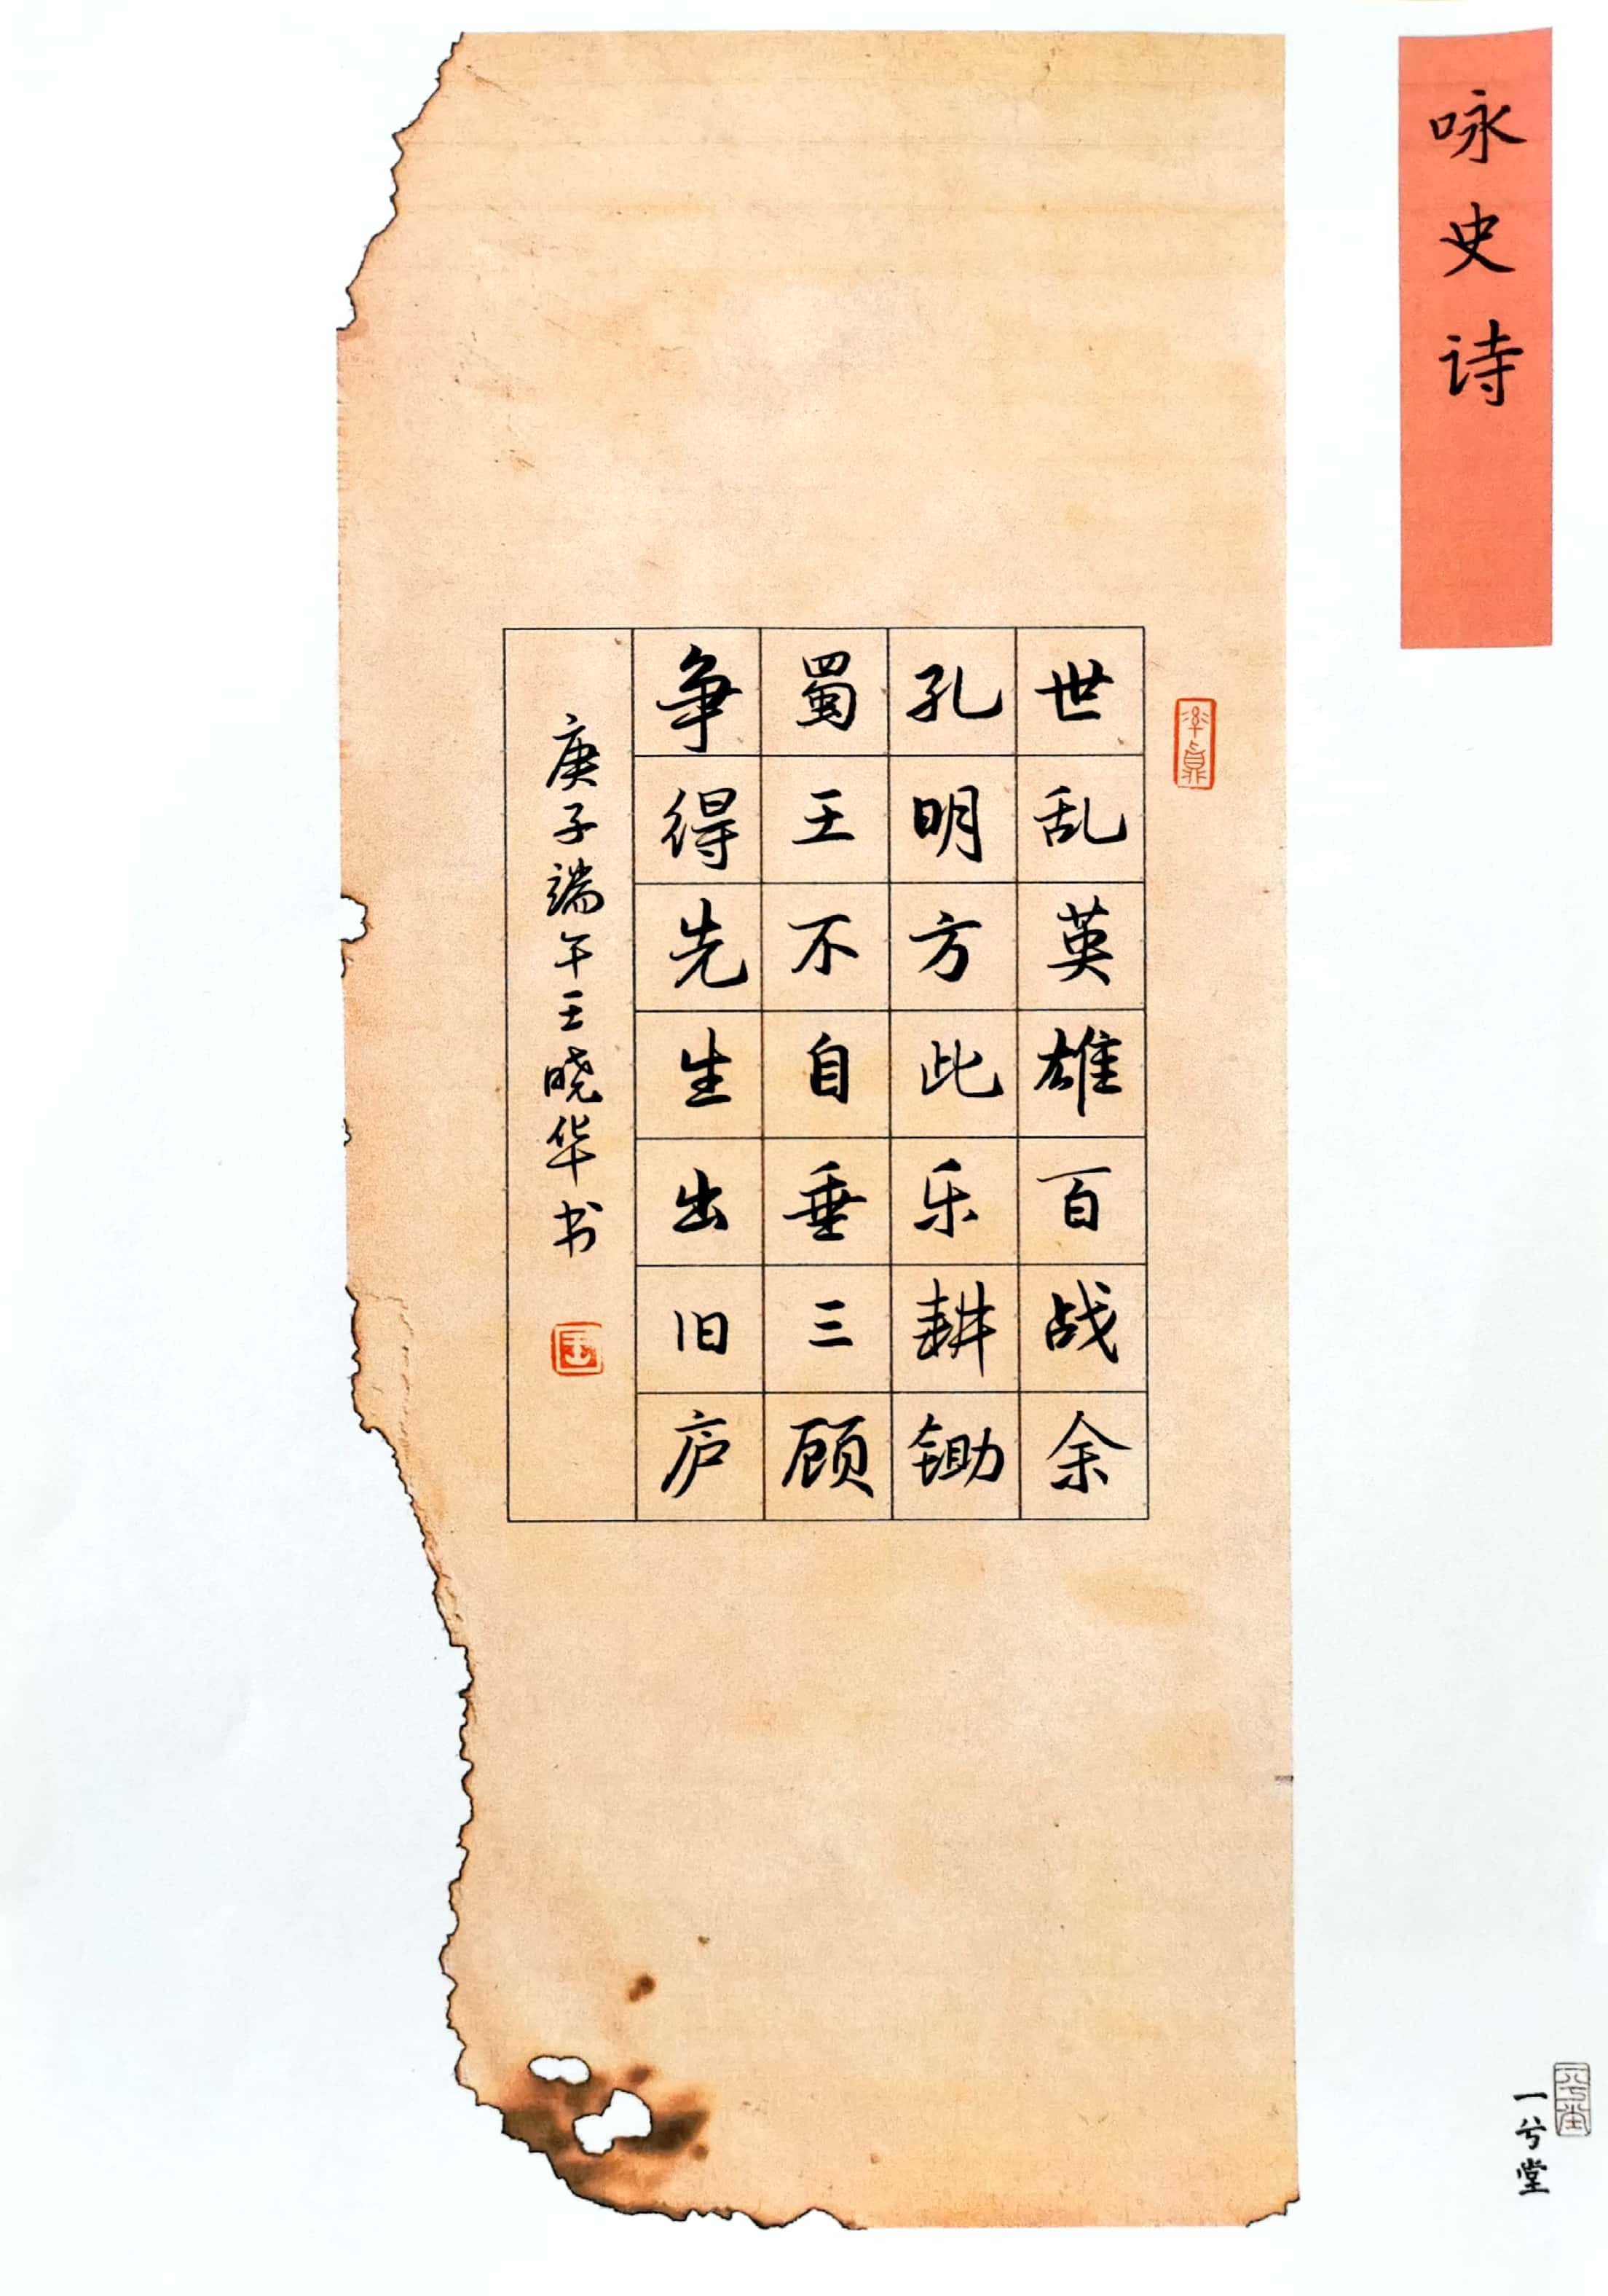 咏史诗
世乱英雄百战余
孔明方此乐耕锄
蜀王不自垂三顾
争得先生出旧庐
庚子端午王晓华书
一兮堂